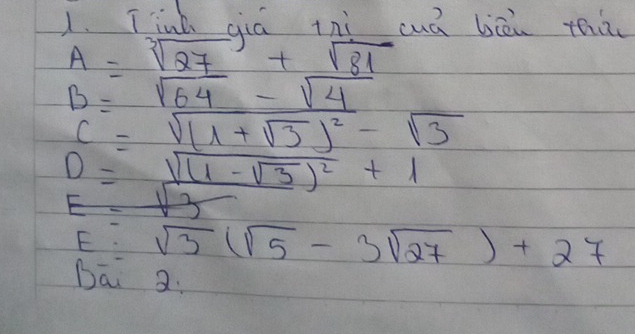 1. Tính giá trị của biểu thức
A = ∛27 + √81
B = √64 - √4
C = √(1 + √3)² - √3
D = √(1 - √3)² + 1
E = √3
E = √3 (√5 - 3√27) + 27
Bài 2: